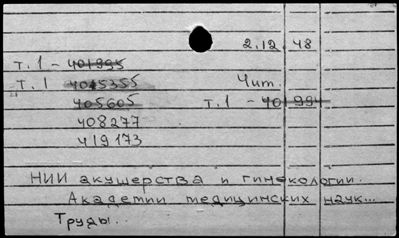 2.12.48
т.1 - 401995
т.1 4045355 Чит.
405605 т.1 - 401994
408277
419173
НИИ акушерства и гинекологии.
Академии медицинских наук...
Труды...